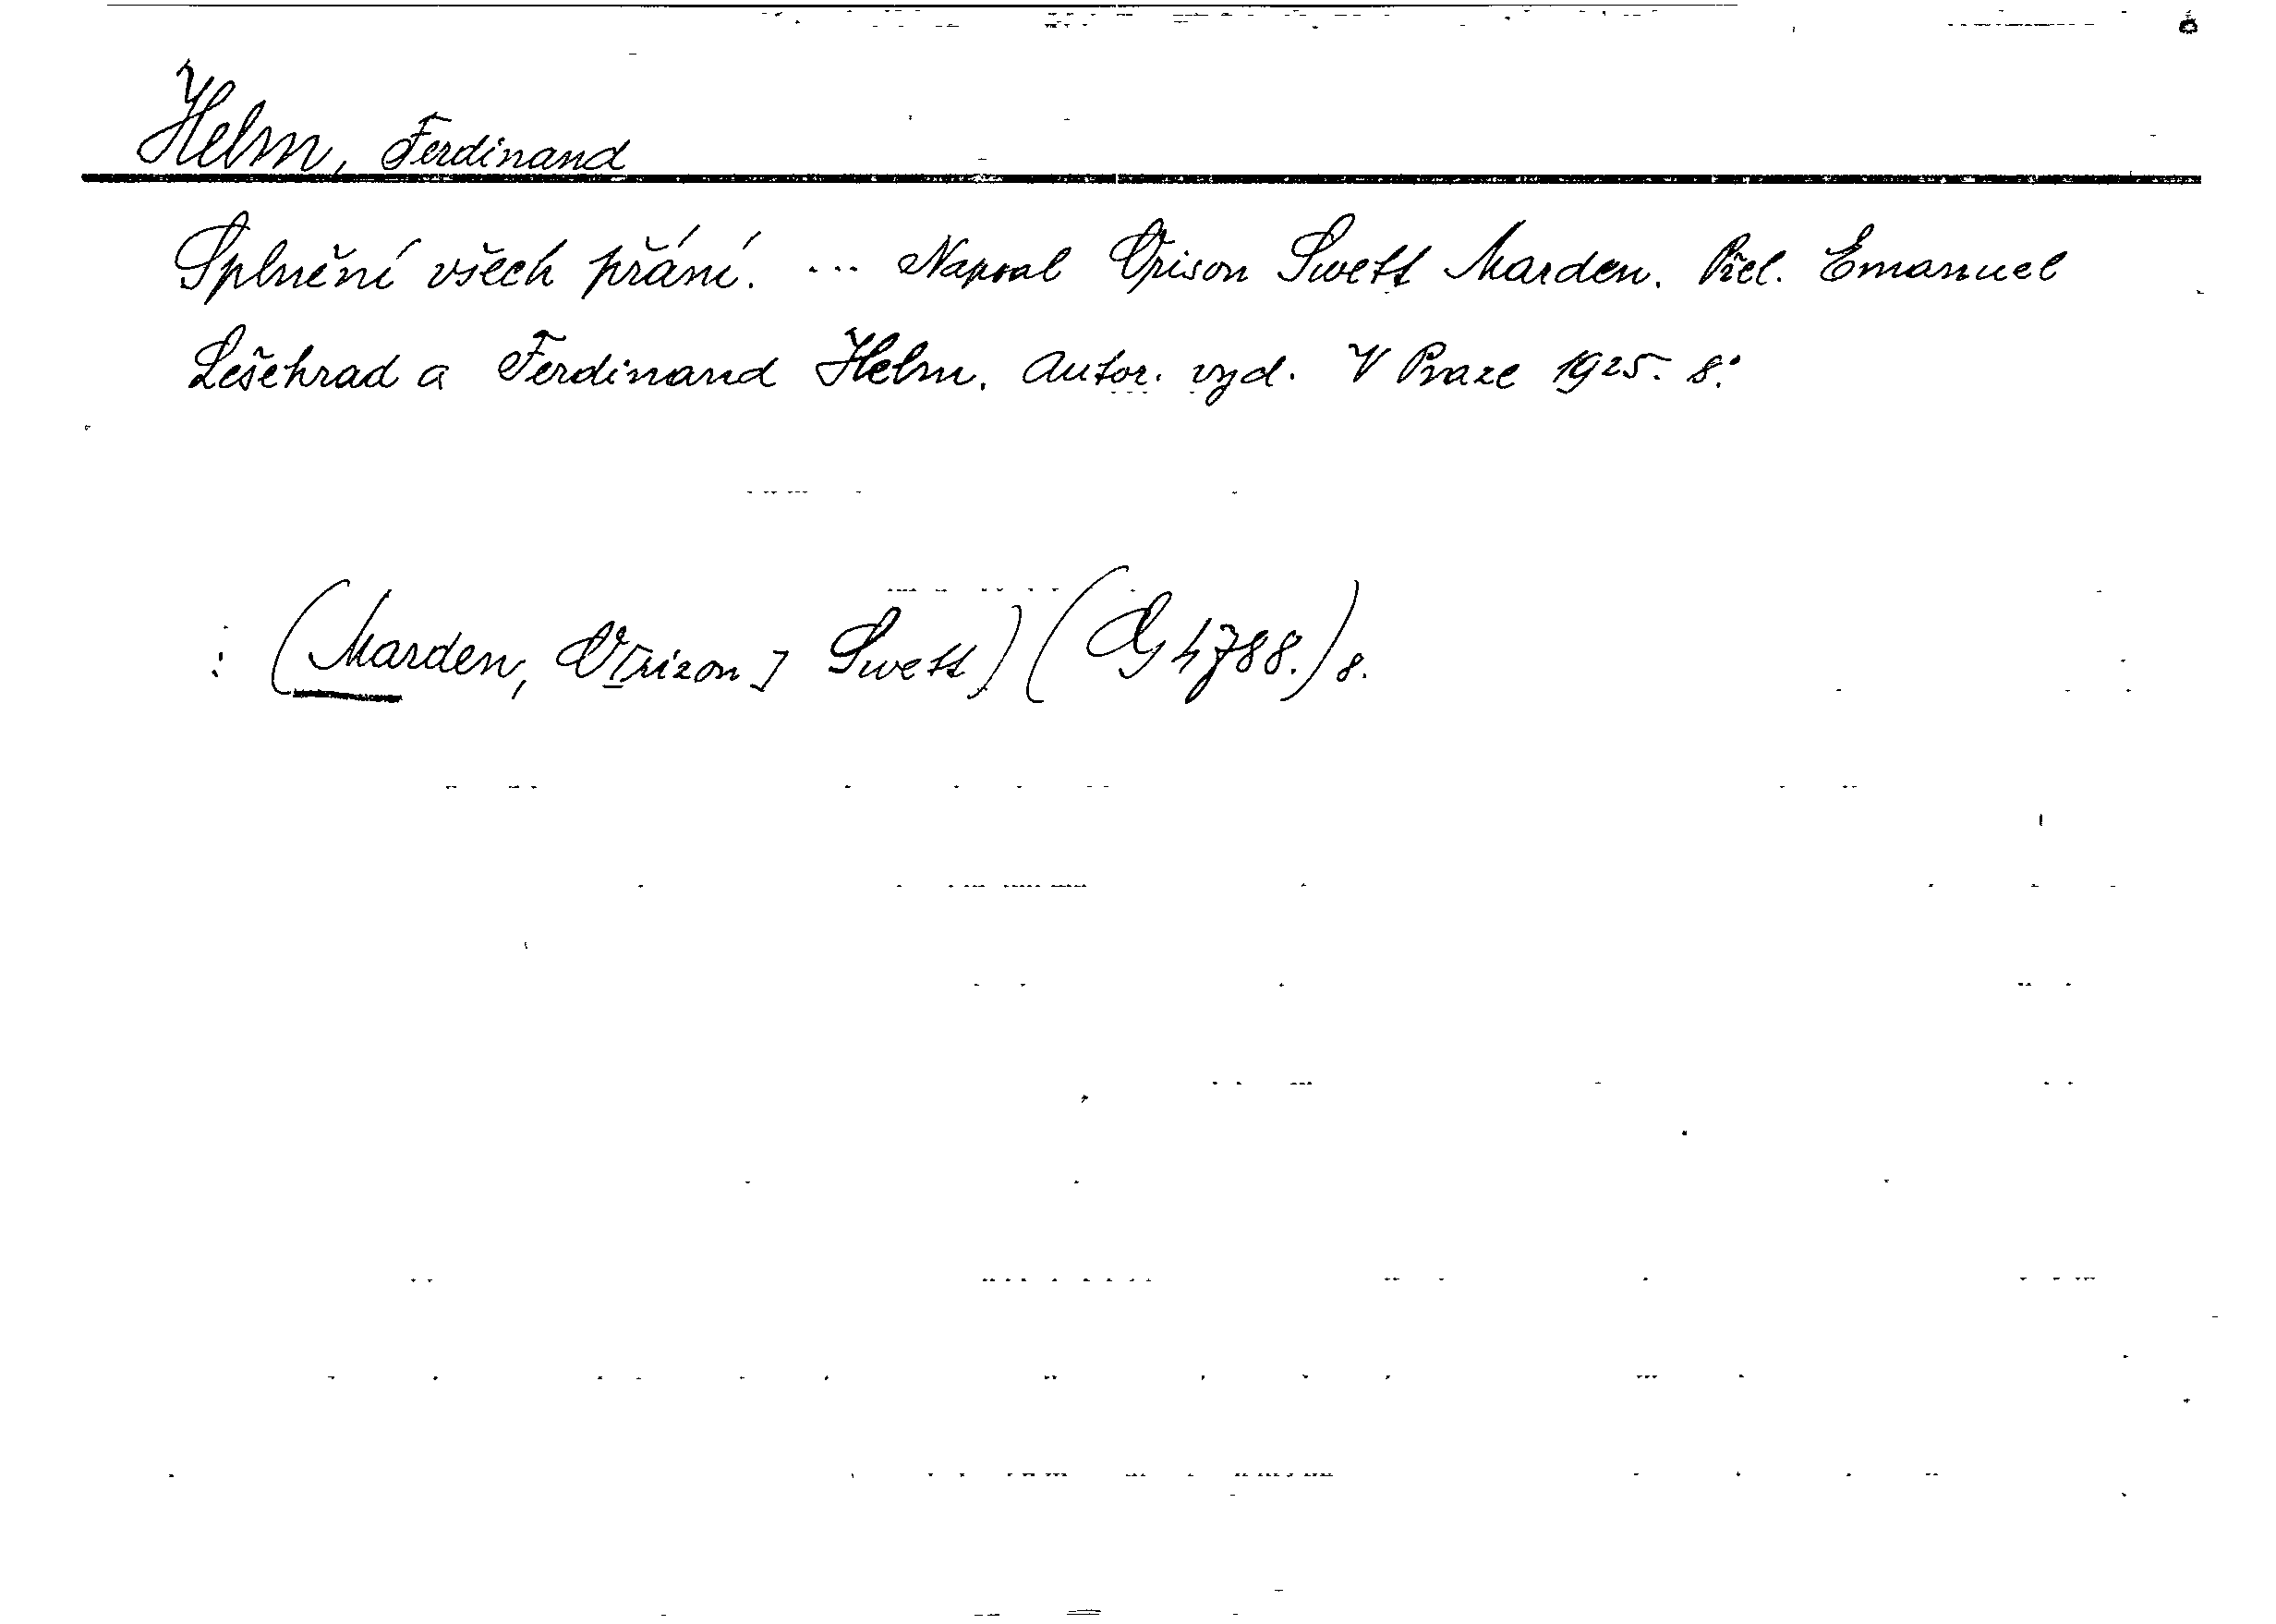 Helm, Ferdinand
Splnění všech přání. ... Napsal Orison Swett Marden. Přel. Emanuel
Lešehrad a Ferdinand Helm. Autor. vyd. V Praze 1925. 8.°
: (Marden, O[rizon] Swett) (Cg 4788.) 8.